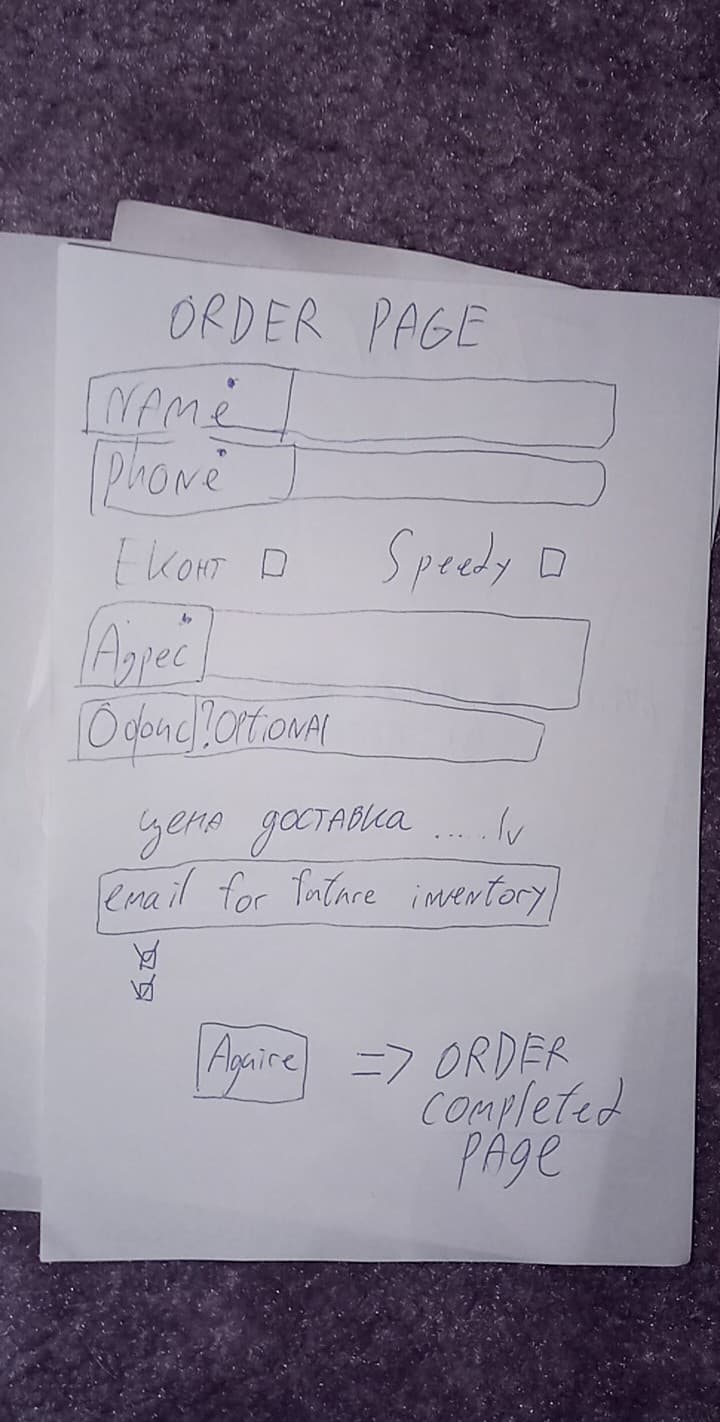 ORDER PAGE
NAMe
phoNe
Еконт Speedy
Адрес
Офис ? OPtiONAl
цена доставка ..... lv
email for future inventory
Aquire => ORDER
completed
PAge